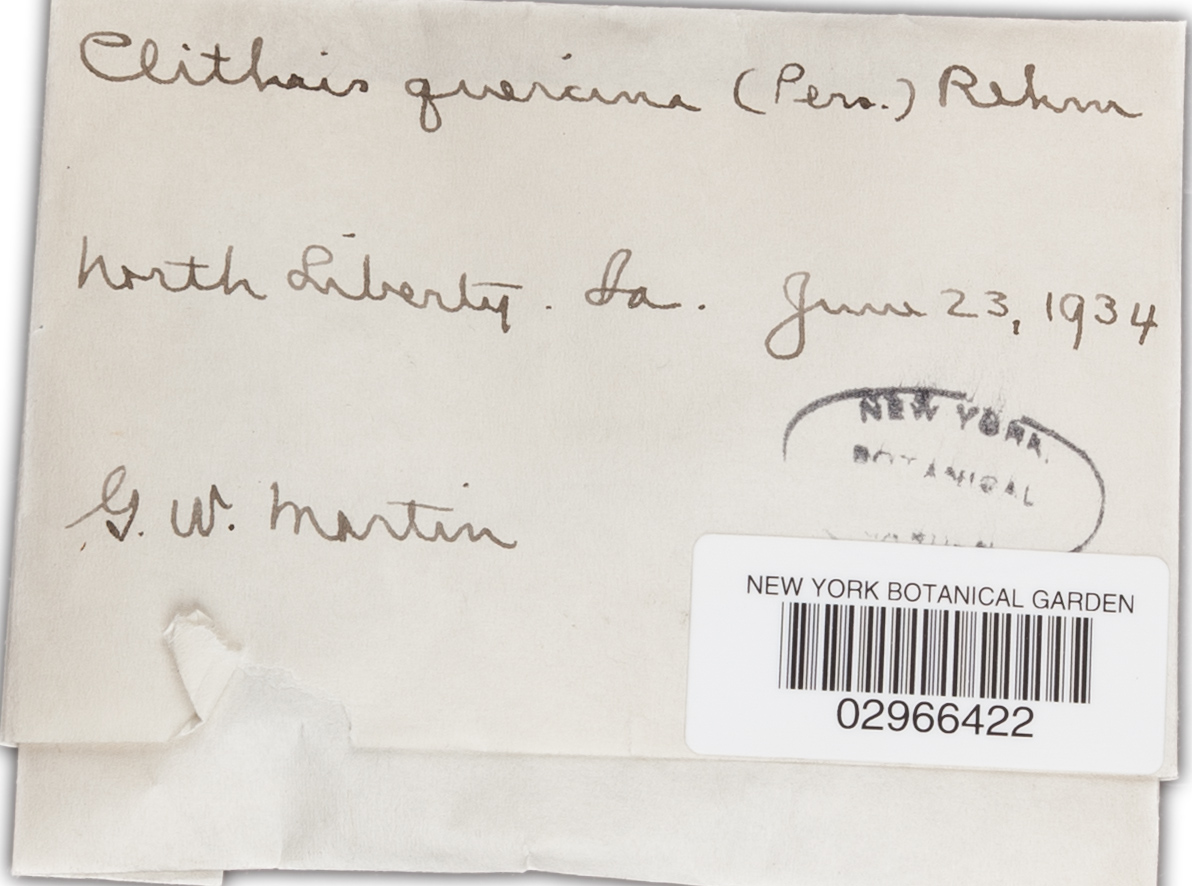 Clithris quercina (Pers.) Rehm
North Liberty. Ia. June 23, 1934
NEW YORK
BOTANICAL
G. W. Martin
NEW YORK BOTANICAL GARDEN
02966422